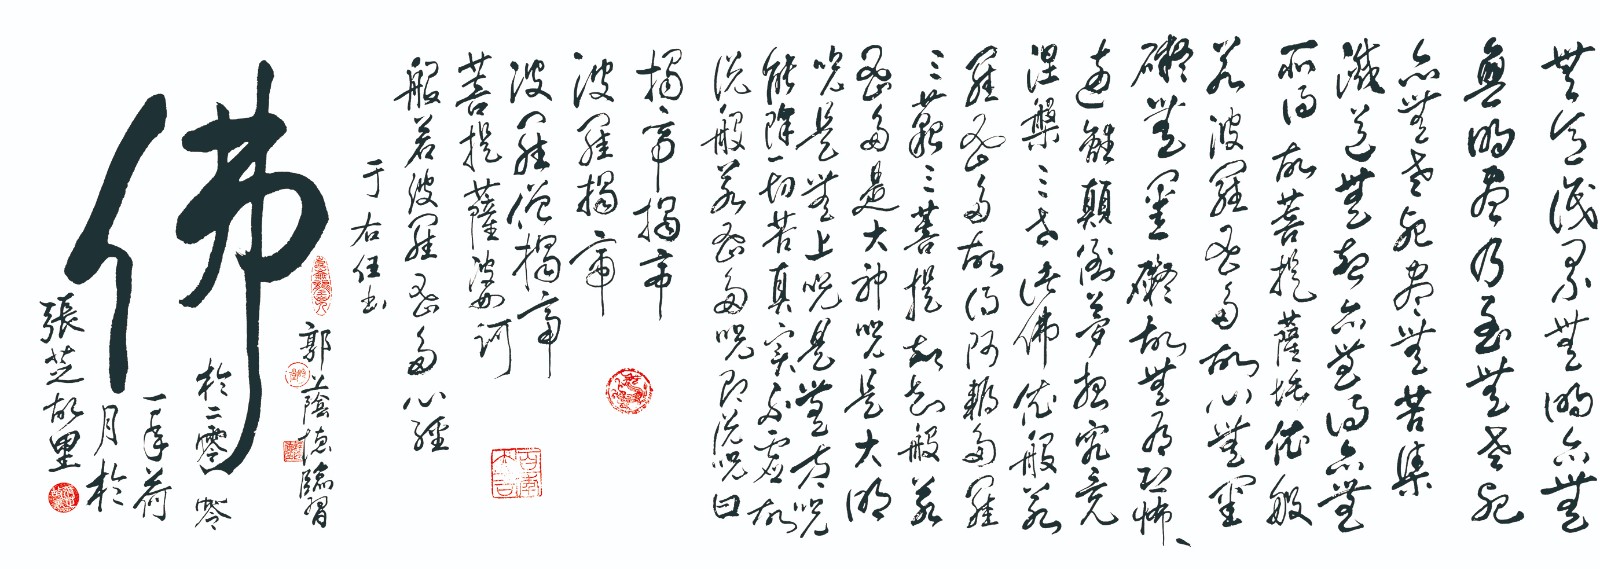 無意識界無明亦無
無明盡乃至無老死
亦無老死盡無苦集
滅道無智亦無得以無
所得故菩提薩埵依般
若波羅蜜多故心無罣
礙無罣礙故無有恐怖、
遠離顛倒夢想究竟
涅槃三世諸佛依般若
羅蜜多故得阿耨多羅
三藐三菩提故知般若
蜜多是大神咒是大明
咒是無上咒是無等咒
能除一切苦真實不虛故
說般若蜜多咒即說咒曰
揭帝揭帝
波羅揭帝
波羅僧揭帝
菩提薩婆訶
般若波羅蜜多心經
于右任書
佛
郭蔭德臨習
於二零一零
年荷
月於
張芝故里